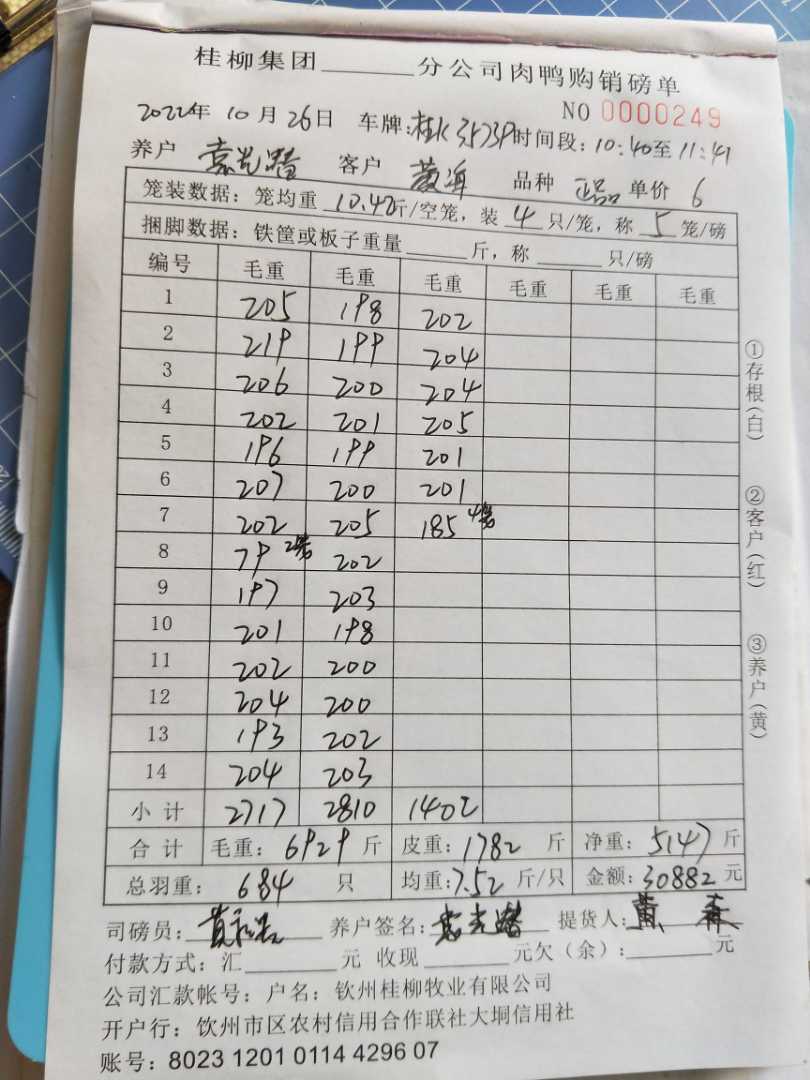 桂柳集团______分公司肉鸭购销磅单
NO 0000249
2022年 10月26日 车牌:桂K3573P 时间段:10:40至11:41
养户 袁光潜 客户 黄海 品种 正品 单价 6
笼装数据:笼均重 10.42斤/空笼,装 4 只/笼,称 5 笼/磅
捆脚数据:铁筐或板子重量______斤,称______只/磅
编号 毛重 毛重 毛重 毛重 毛重 毛重
1 205 198 202
2 219 199 204
3 206 200 204
4 202 201 205
5 196 199 201
6 207 200 201
7 202 205 185 4笼
8 79 2笼 202
9 197 203
10 201 198
11 202 200
12 204 200
13 193 202
14 204 203
小计 2717 2810 1402
合计 毛重:6929 斤 皮重:1782 斤 净重:5147 斤
总羽重:684 只 均重:7.52 斤/只 金额:30882 元
司磅员: 养户签名:袁光潜 提货人:黄森
付款方式:汇______元 收现______元欠(余):______元
公司汇款帐号:户名:钦州桂柳牧业有限公司
开户行:饮州市区农村信用合作联社大垌信用社
账号:8023 1201 0114 4296 07
①存根(白)
②客户(红)
③养户(黄)